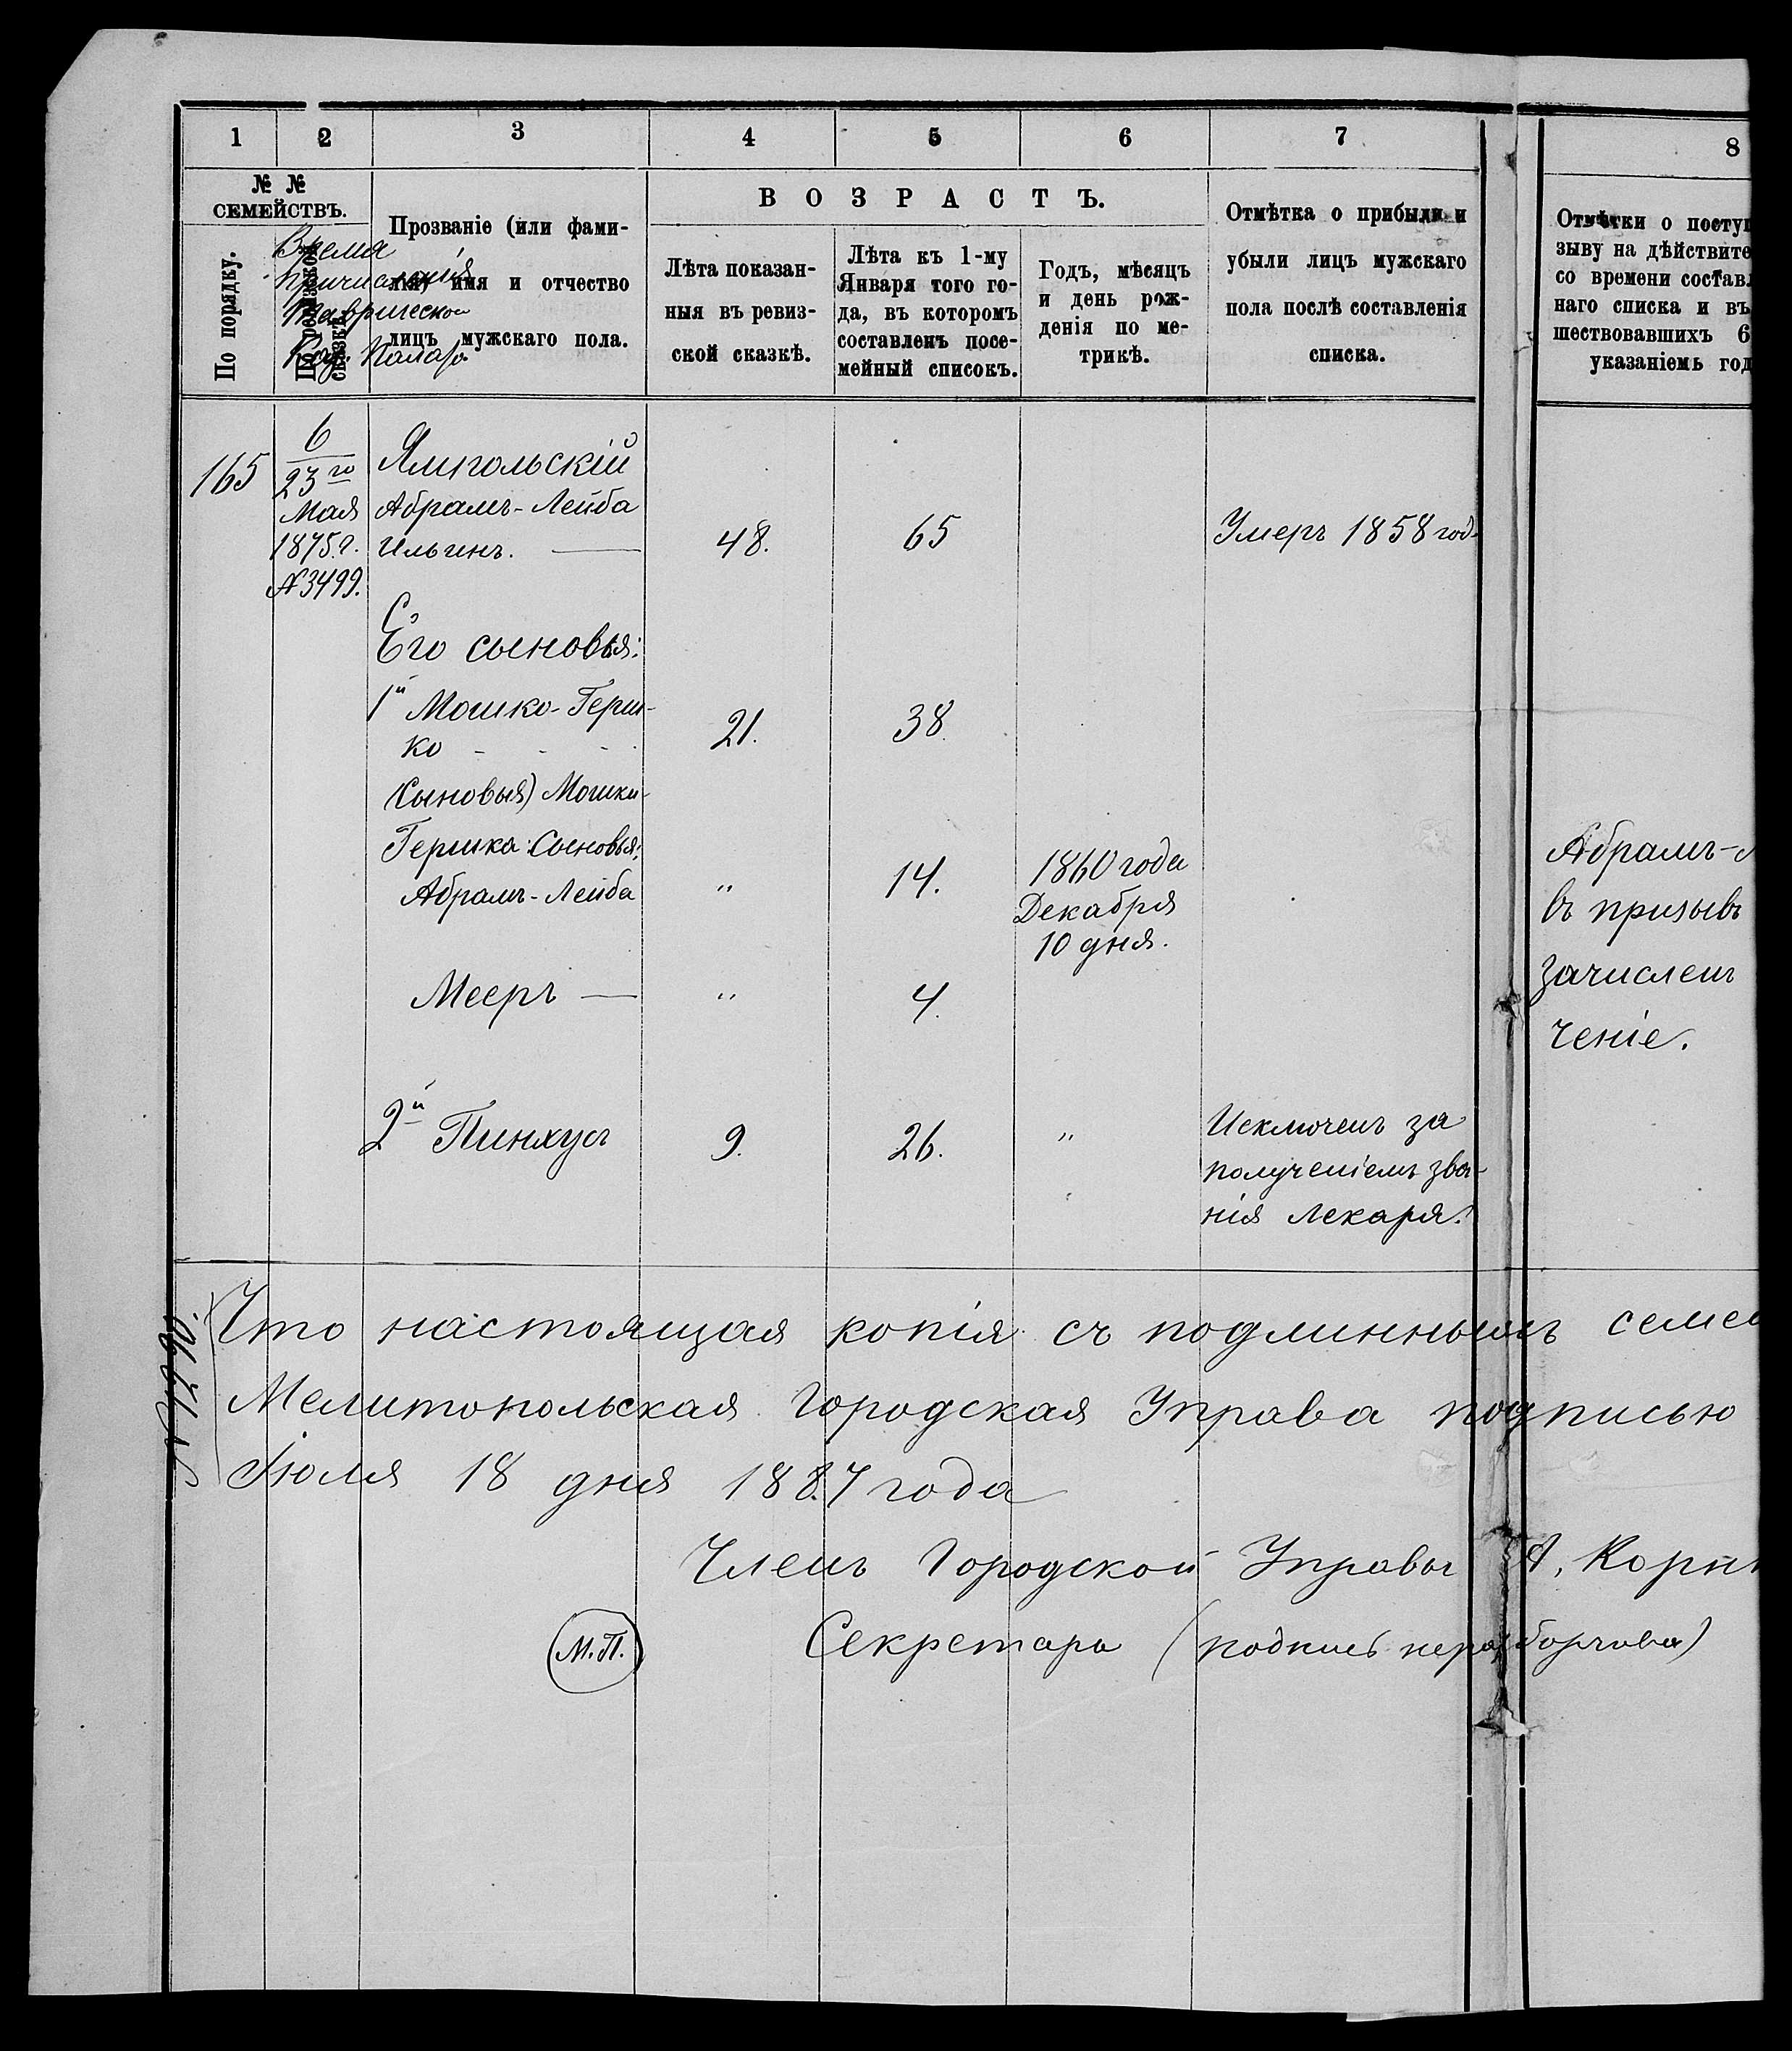 1 2 3 4 5 6 7 8
№ №
СЕМЕЙСТВЪ.
По порядку.
По ревизской
сказкѣ.
Время
причисленія
Таврической
Каз. Палаты
Прозваніе (или фами-
лія) имя и отчество
лицъ мужскаго пола.
ВОЗРАСТЪ.
Лѣта показан-
ныя въ ревиз-
ской сказкѣ.
Лѣта къ 1-му
Января того го-
да, въ которомъ
составленъ посе-
мейный списокъ.
Годъ, мѣсяцъ
и день рож-
денія по ме-
трикѣ.
Отмѣтка о прибыли и
убыли лицъ мужскаго
пола послѣ составленія
списка.
Отмѣтки о посту
зыву на дѣйствите
со времени составл
наго списка и въ
шествовавшихъ 6
указаніемъ год
165
6
23го
Мая
1875.г.
№3499.
Ямпольскій
Абрамъ-Лейба
Ильинъ.
48.
65
Умеръ 1858 год
Его сыновья:
1й Мошко-Герш-
ко
21.
38.
(Сыновья) Мошки-
Гершка Сыновья:
Абрамъ-Лейба
"
14.
1860 года
Декабря
10 дня.
Абрамъ-Л
въ призывъ
зачисленъ
ченіе.
Мееръ
"
4.
2й Пинхусъ
9.
26.
"
Исключенъ за
полученіемъ зва-
нія лекаря.
№ 1290.
Что настоящая копія съ подлиннымъ семей
Мелитопольская Городская Управа подписью
Іюля 18 дня 1887 года
Членъ Городской Управы А. Корн
М.П.
Секретарь (подпись неразборчива)